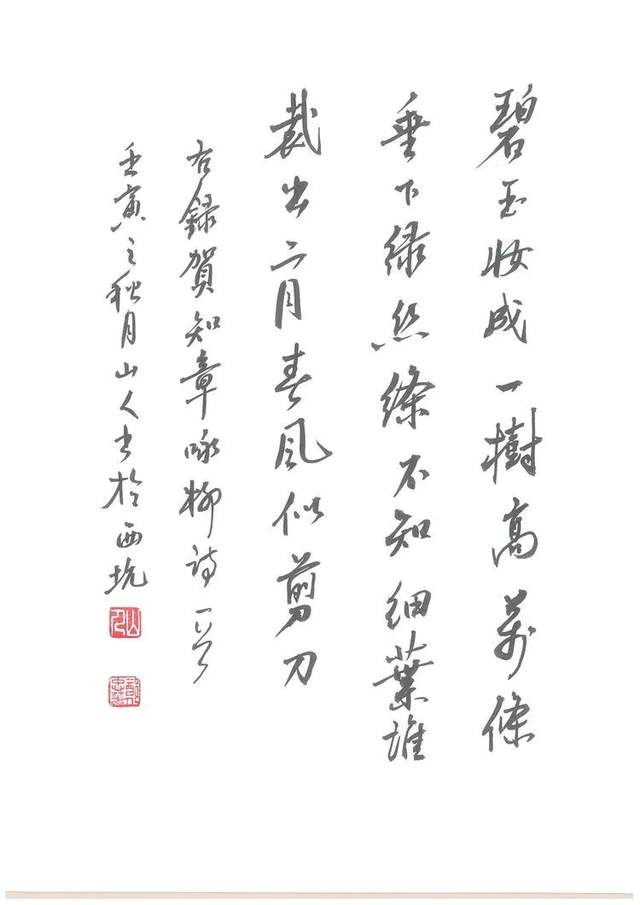 碧玉妝成一樹高萬條
垂下緑丝絛不知細葉誰
裁出二月春風似剪刀
右録賀知章咏柳詩一首
壬寅之秋月山人书於西坑